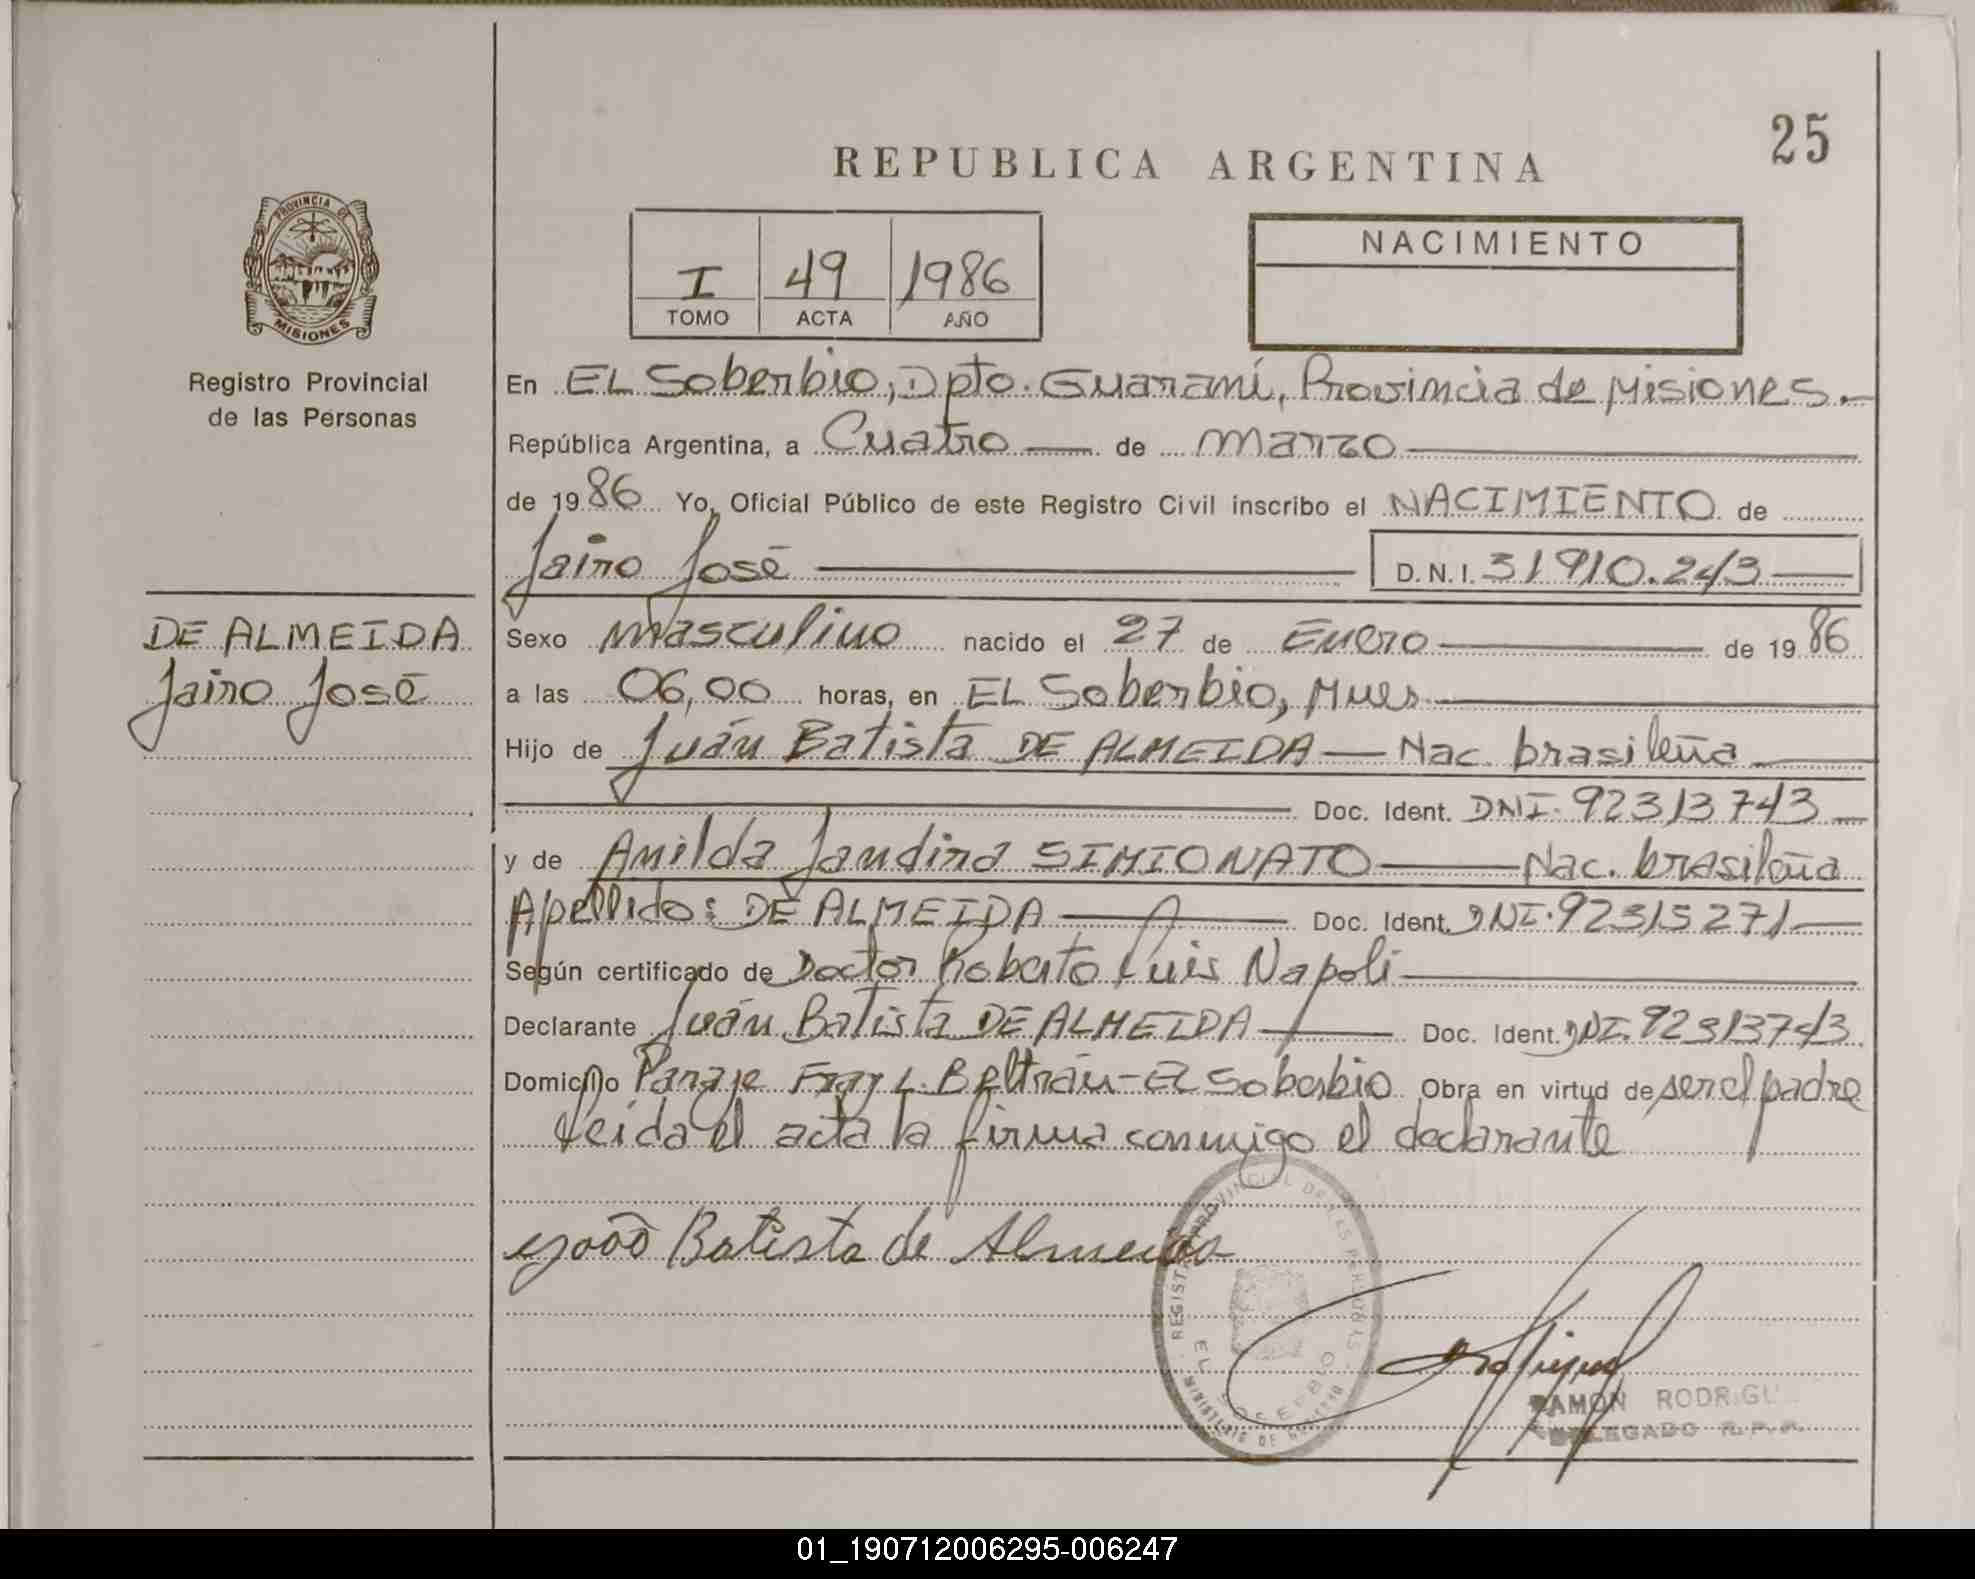 25
REPUBLICA ARGENTINA
PROVINCIA DE
MISIONES
Registro Provincial
de las Personas
I 49 1986
TOMO ACTA AÑO
NACIMIENTO
En EL Soberbio, Dpto. Guaraní, Provincia de Misiones.-
República Argentina, a Cuatro de marzo
de 1986 Yo, Oficial Público de este Registro Civil inscribo el NACIMIENTO de
Jairo José D.N.I. 31910.243
DE ALMEIDA
Jairo José
Sexo masculino nacido el 27 de Enero de 1986
a las 06,00 horas, en EL Soberbio, Mnes
Hijo de Juán Batista DE ALMEIDA Nac. brasileña
Doc. Ident. DNI. 92313743
y de Anilda Jandira SIMIONATO Nac. brasileña
Apellido: DE ALMEIDA Doc. Ident. DNI. 92315271
Según certificado de Doctor Roberto Luis Napoli
Declarante Juán Batista DE ALMEIDA Doc. Ident. DNI. 92313743
Domicilio Paraje Fray L. Beltrán - El Soberbio Obra en virtud de ser el padre
Leida el acta la firma conmigo el declarante
João Batista de Almeida
REGISTRO PROVINCIAL DE LAS PERSONAS
EL SOBERBIO
MINISTERIO DE GOBIERNO
RAMON
DELEGADO R.P.P.
01_190712006295-006247